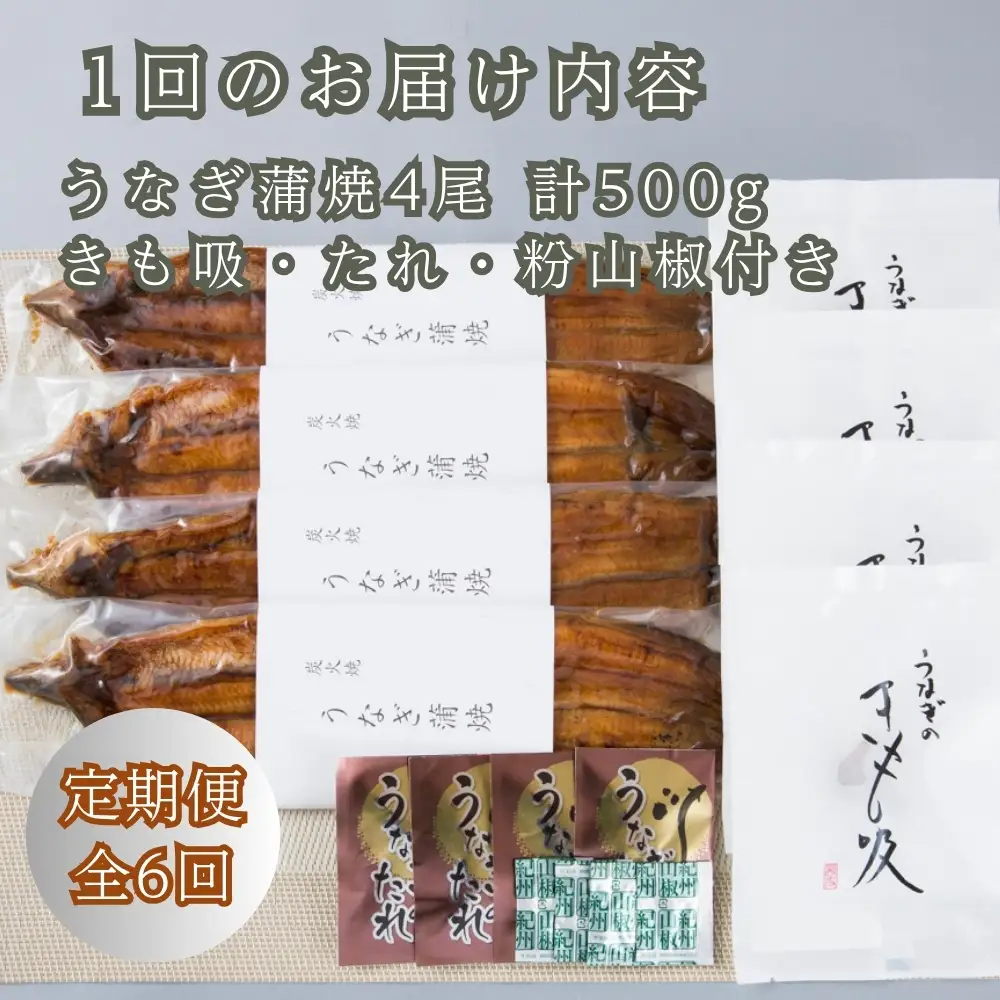 1回のお届け内容
うなぎ蒲焼4尾 計500g
きも吸・たれ・粉山椒付き
炭火焼
うなぎ蒲焼
炭火焼
うなぎ蒲焼
炭火焼
うなぎ蒲焼
炭火焼
うなぎ蒲焼
うなぎ
うな
うな
うなぎの
きも吸
定期便
全6回
うな
たれ
うな
たれ
うな
うなぎ
紀州
山椒
紀州
山椒
紀州
山椒
紀州